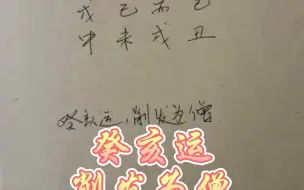 戊 己 丙 己
申 未 戌 丑
癸亥运,削发为僧
癸亥运
削发为僧